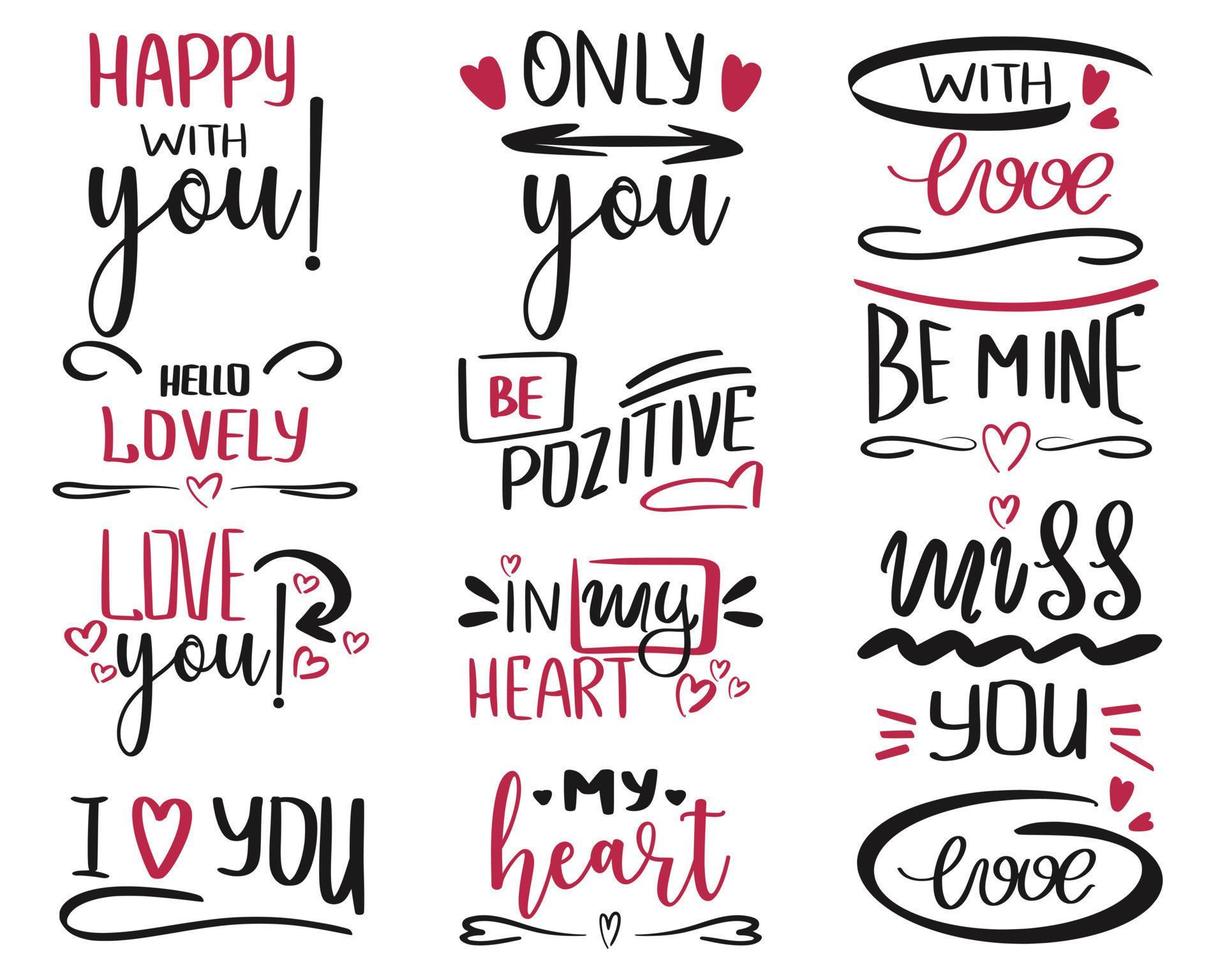 HAPPY
WITH
you!
HELLO
LOVELY
LOVE
you!
I ♡ YOU
ONLY
you
BE
POZITIVE
IN my
HEART
MY
heart
WITH
love
BE MINE
miss
YOU
love